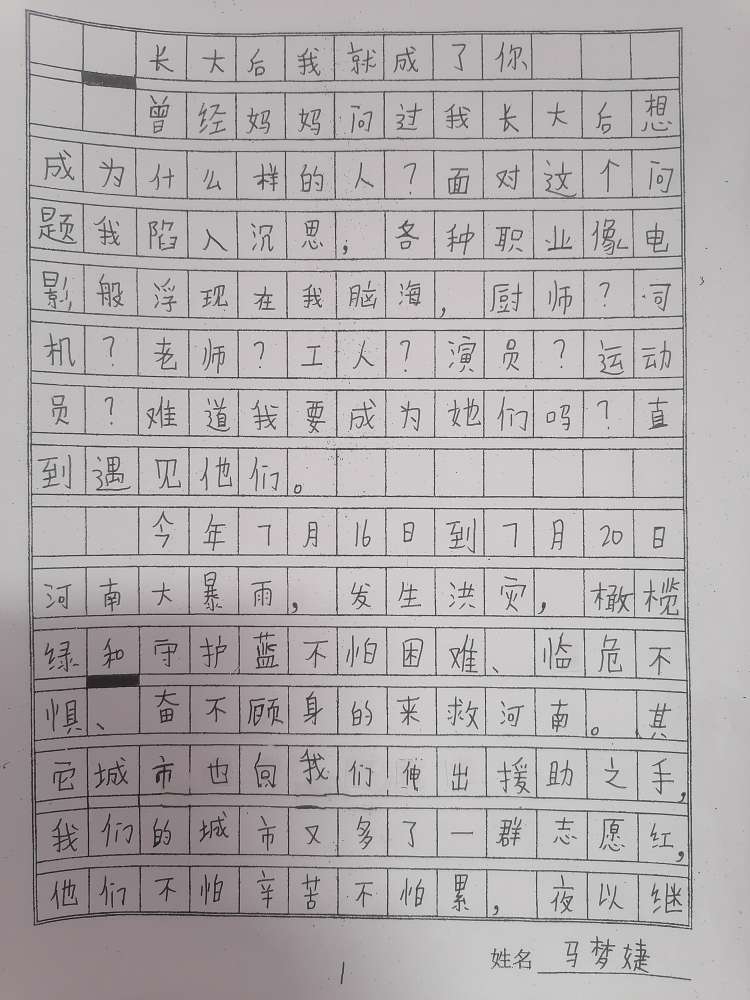 长大后我就成了你
曾经妈妈问过我长大后想
成为什么样的人？面对这个问
题我陷入沉思，各种职业像电
影般浮现在我脑海，厨师？司
机？老师？工人？演员？运动
员？难道我要成为她们吗？直
到遇见他们。
今年7月16日到7月20日
河南大暴雨，发生洪灾，橄榄
绿和守护蓝不怕困难、临危不
惧、奋不顾身的来救河南。其
它城市也向我们伸出援助之手，
我们的城市又多了一群志愿红，
他们不怕辛苦不怕累，夜以继
姓名 马梦婕
1